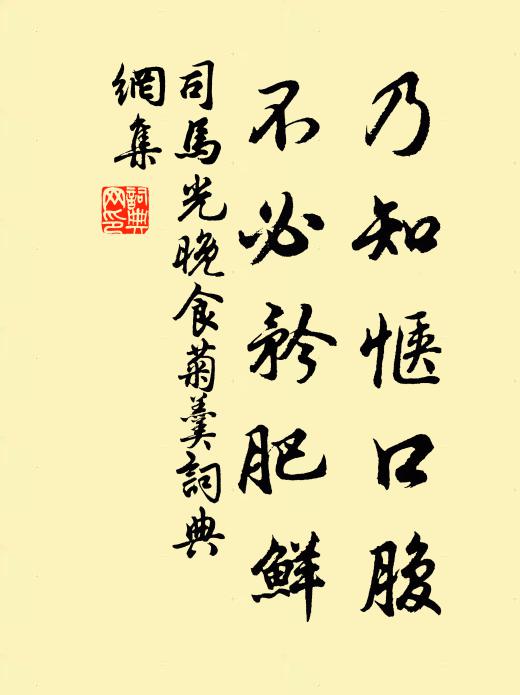 乃知惬口腹
不必矜肥鮮
司馬光晚食菊羹詞典
網集
詞典網印